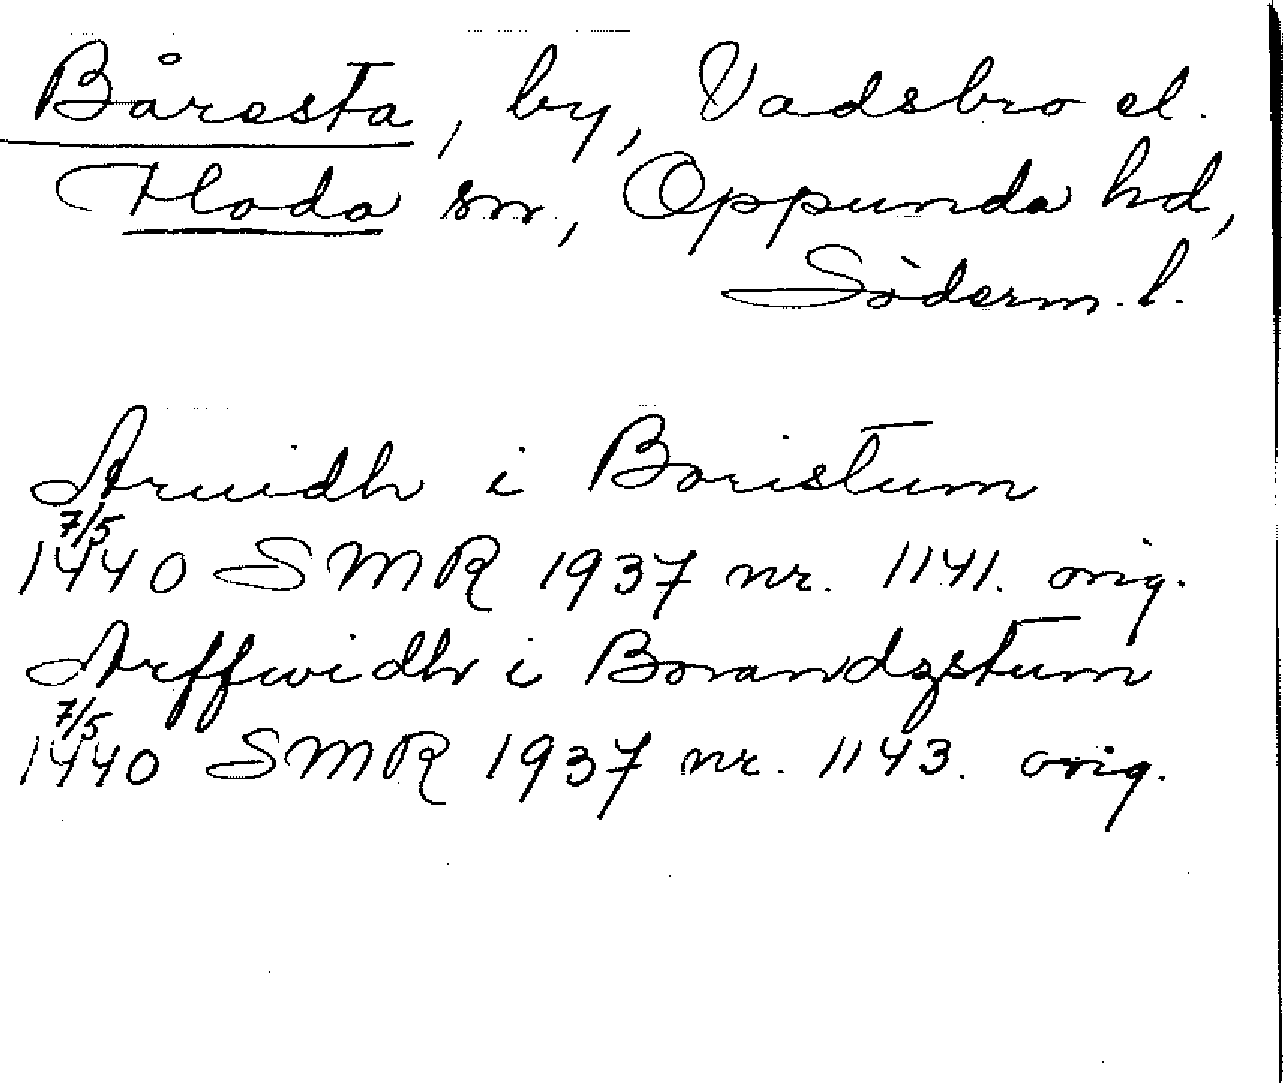 Båresta, by, Vadsbro el.
Floda sn., Oppunda hd,
Söderm. l.
Aruidh i Boristum
7/5
1440 SMR 1937 nr. 1141. orig.
Arffwidh i Borandzstum
7/5
1440 SMR 1937 nr. 1143. orig.